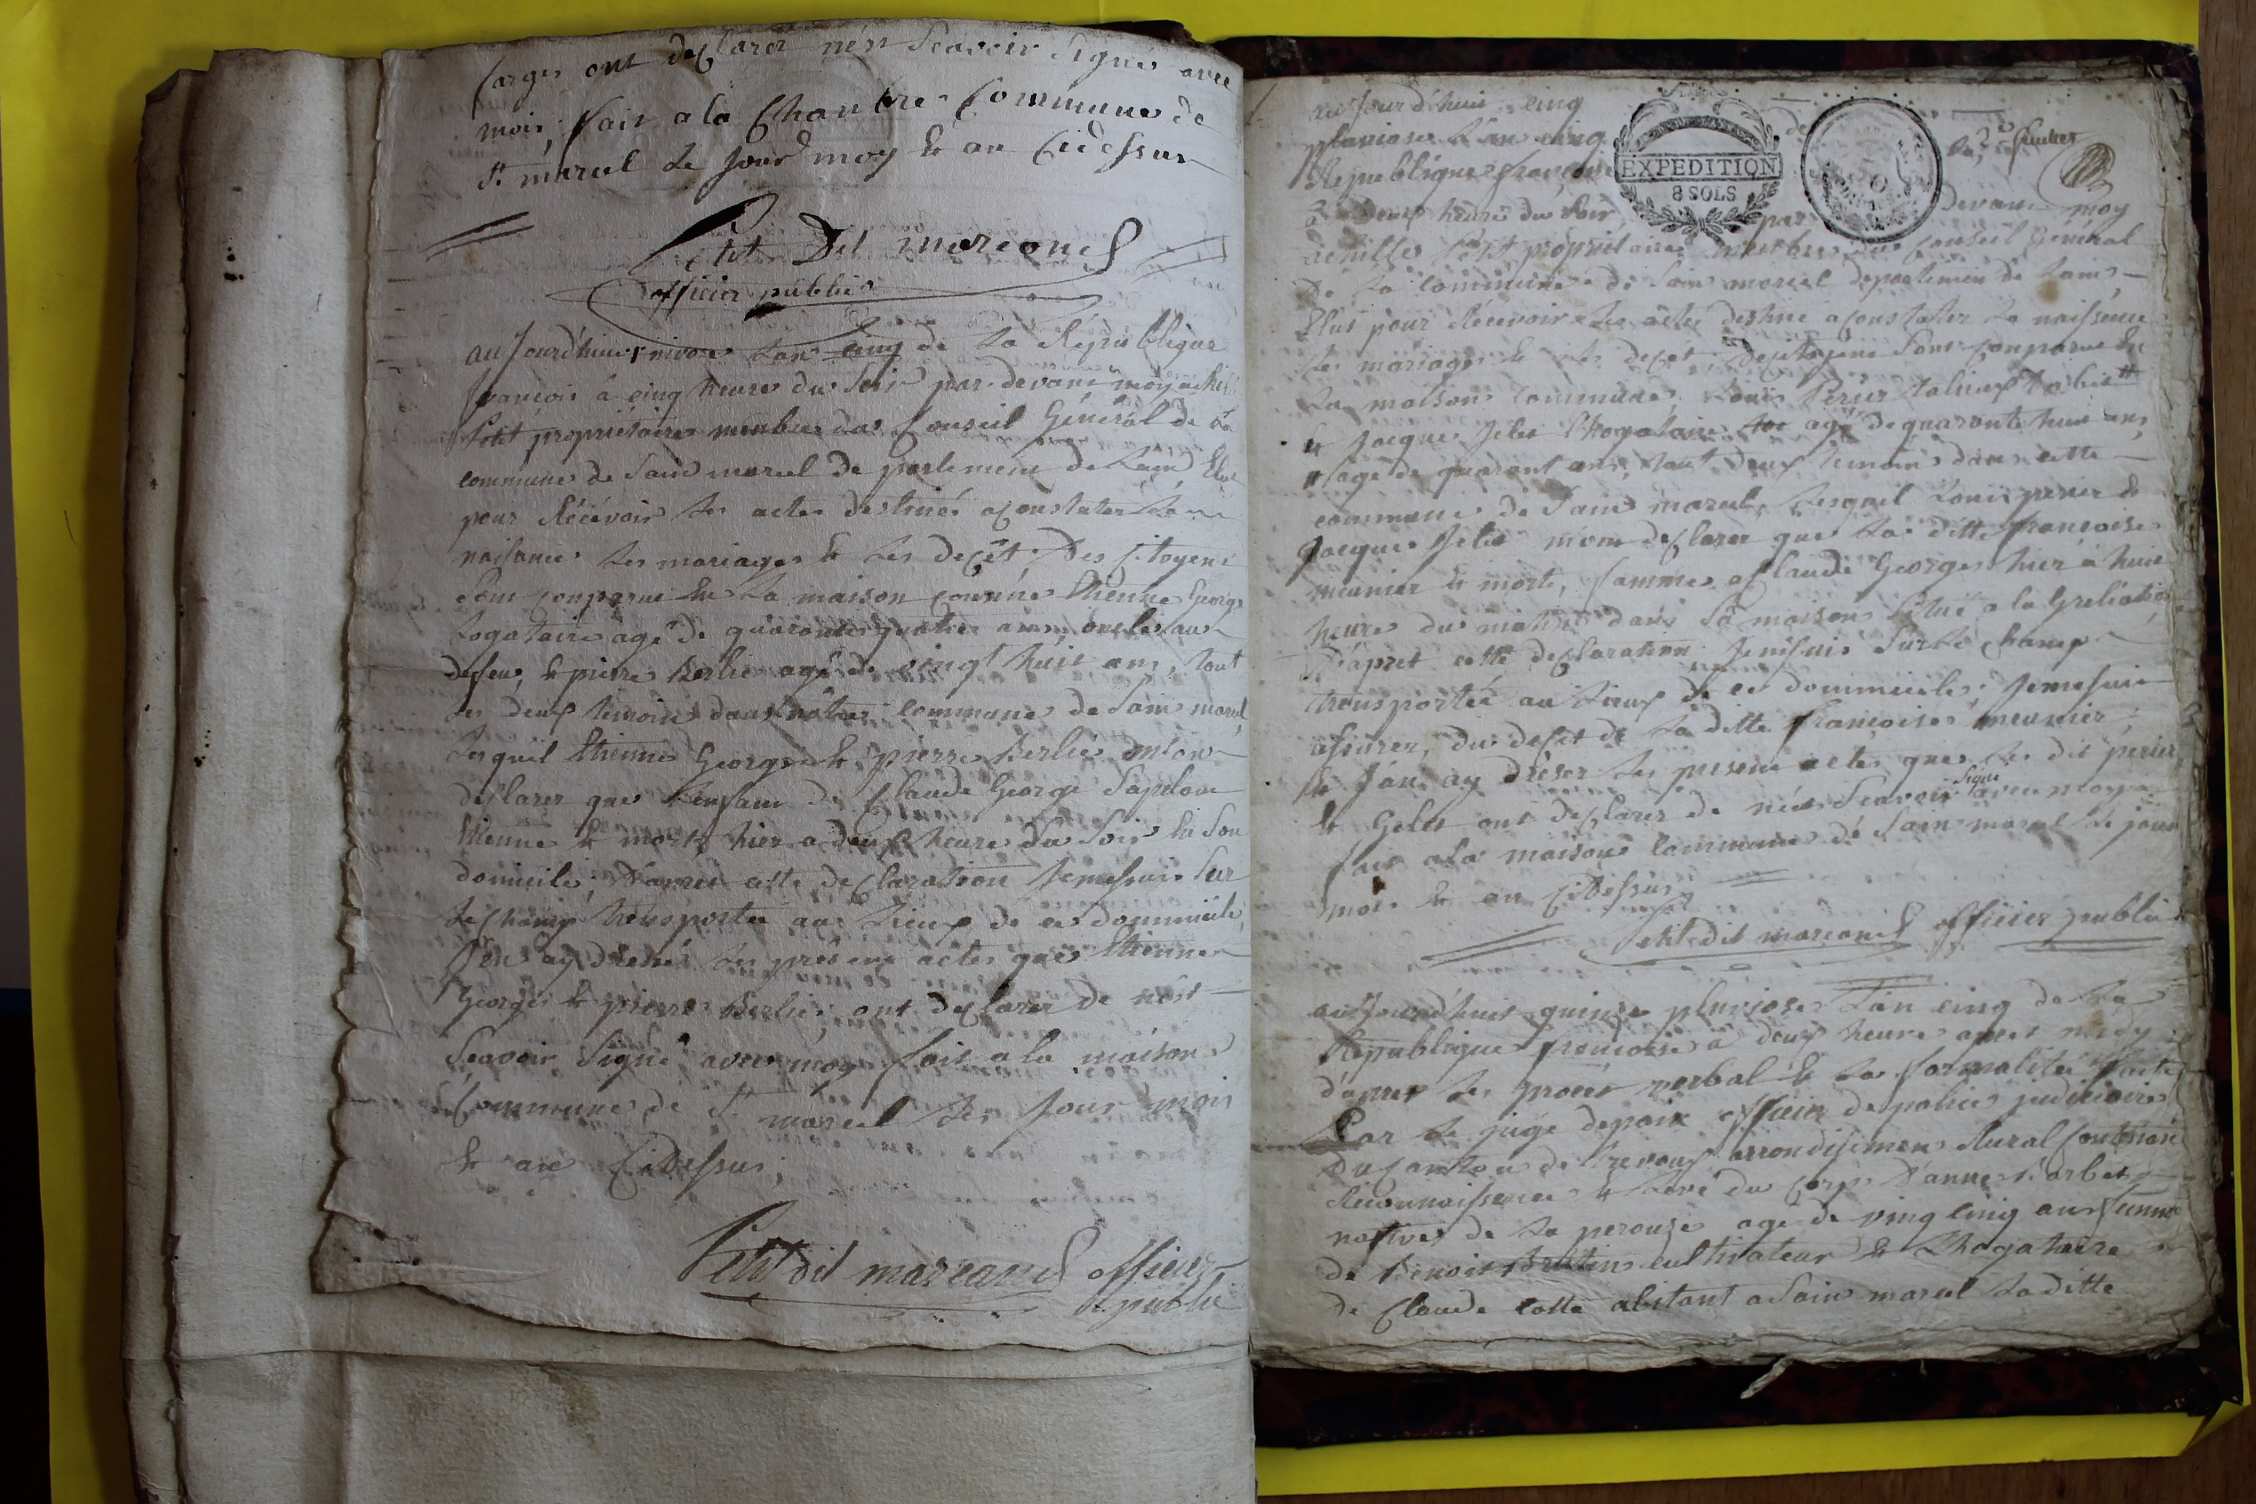 Carge ont declarer nén Scavoir Signé avec
moi, fait a la Chambre Commune de
St marcel le Jour moy & an Cidessus
Petit Dit marconet
officier public
aujourd'huit nivose Lan cinq de la République
francois à cinq heure du Soir par devant moy achille
Petit propriétaire membre du Conseil Général de la
commune de Sain marcel de partement de Lain Elue
pour Récévoir les actes destinés a Constater la
naisance les mariages & les decét Des Citoyens
Sont Conparue En la maison comune Etienne George
Logataire agé de quarante quatre ans oncle au
defeu, & pierre Berlie agé de vingt huit ans, tout
les deux temoins dans nôtre commune de Sain marcel
lesquel Etienne George & pierre Berlié mon
declarer que Lenfant de Claude George Sapelan
Etienne & mort hier a deux heure du Soir En Son
domicile; Dapret cette declaration Jemesuis Sur
le Champ transportée au Lieux de ce dommicile,
J'en ay dressés les présent actes que Etienne
George & pierre Berlié; ont declarer de nêst
Scavoir Signé avec moy fait a la maison
Commune de St marcel les Jour mois
& an CiDessus;
Petit dit marconet officier
public
aujourd'huit cinq
pluviose Lan cinq de
République françoise
EXPEDITION
8 SOLS
à deux heure du Soir par Devant moy
achille Petit propriétaire membre du Conseil Général
De la Commune de Sain marcel departement de Lain
Elus pour Récevoir les actes destiné a Constater la naissence
les mariage & les decét; Decitoyens Sont Conparue En
La maison Commune Louis Perier
& Jacque Jelet Lhogataire agé de quaronte huit ans
agé de quarant ans, tout deux temoin dans cette
commune de Sain marcel, lesquel Louis perier &
Jacque Jelet m'ons declarer que La ditte françoise
meunier & morte, famme a Claude George hier à huit
heure du matin dans Sa maison Situé a la Greliatié
D'apret cette declaration Jemesuis Sur le Champ
transportée au Lieux de ce dommicile; Jemesuis
assurer, du decét de La ditte françoise meunier,
& J'an ay dréser les presens actes que les dit périer
& Gelet ont declarer de néss Scavoir Signé avec moy
fait a la maison Commune de Sain marcel le jour
mois & an CiDessus
Petit dit marconet officier public
aujourd'huit quinze pluviose Lan cinq de la
République francoise à deux heure apret midy
d'apret les procét verbal & la formalité faite
Par le juge depaix officier depolice judiciaire
Du Canton de Trevoux arrondissement Rural
Réconnoissence & Levé du Corps D'anne
native de la perouze agé de vingt cinq ans famme
de Benoit Bretin cultivateur & Lhogataire
de Claude Cotte abitant a Sain marcel La ditte